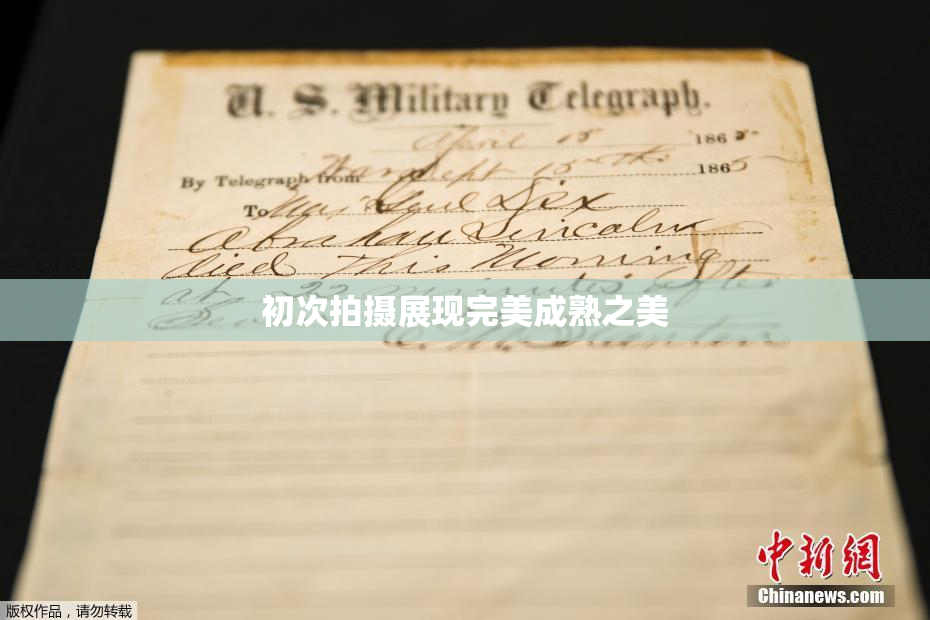 U. S. Military Telegraph.
April 15 1865
By Telegraph from War Dept 15th 1865
To Maj Genl Dix
Abraham Lincoln
died This Morning
at 22 minutes after
初次拍摄展现完美成熟之美
E. M. Stanton
中新网
Chinanews.com
版权作品，请勿转载